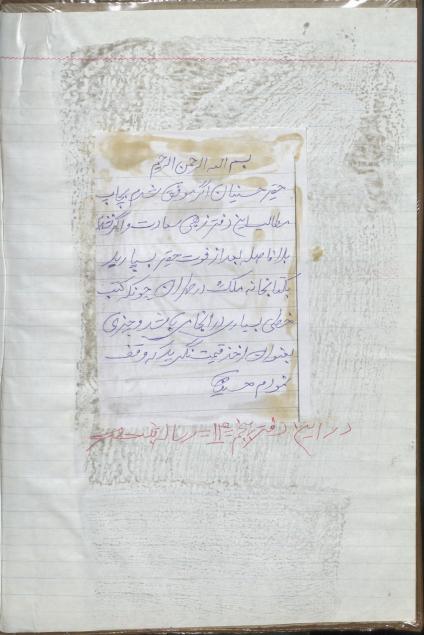 بسم الله الرحمن الرحیم
حقیر حسینیان اگر موفق شدم بچاپ
مطالب این دفتر زهی سعادت و اگر نشد
بلافاصله بعد از فوت حقیر بسپارید
بکتابخانه ملک در طهران چونکه کتب
خطی بسیاری در آنجا می باشد و چیزی
بعنوان اخذ قیمت نگیرید که وقف
نمودم
در این دفتر